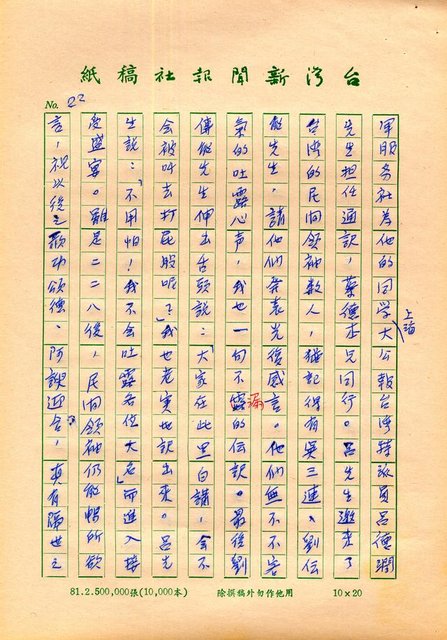 台灣新聞報社稿紙
No. 22
軍服务社為他的同学上海大公報台湾特派員呂德潤
先生担任通訳，蔡德本兄同行。呂先生邀来了
台湾的民间领袖数人，猶記得有吳三連、劉伝
能先生，請他們発表光復感言。他們無不客
氣的吐露心声，我也一句不漏的伝訳。最後劉
傳能先生伸出舌頭説：「大家在此里白講，会不
会被叫去打屁股呢？」我也老実地訳出来。呂先
生説：「不用怕！我不会吐露各位大名」而進入接
受盛宴。雖是二二八後，民间领袖仍能暢所欲
言，視以後之歌功頌德、阿諛迎合，真有隔世之
81.2.500,000張(10,000本)
除撰稿外勿作他用
10×20